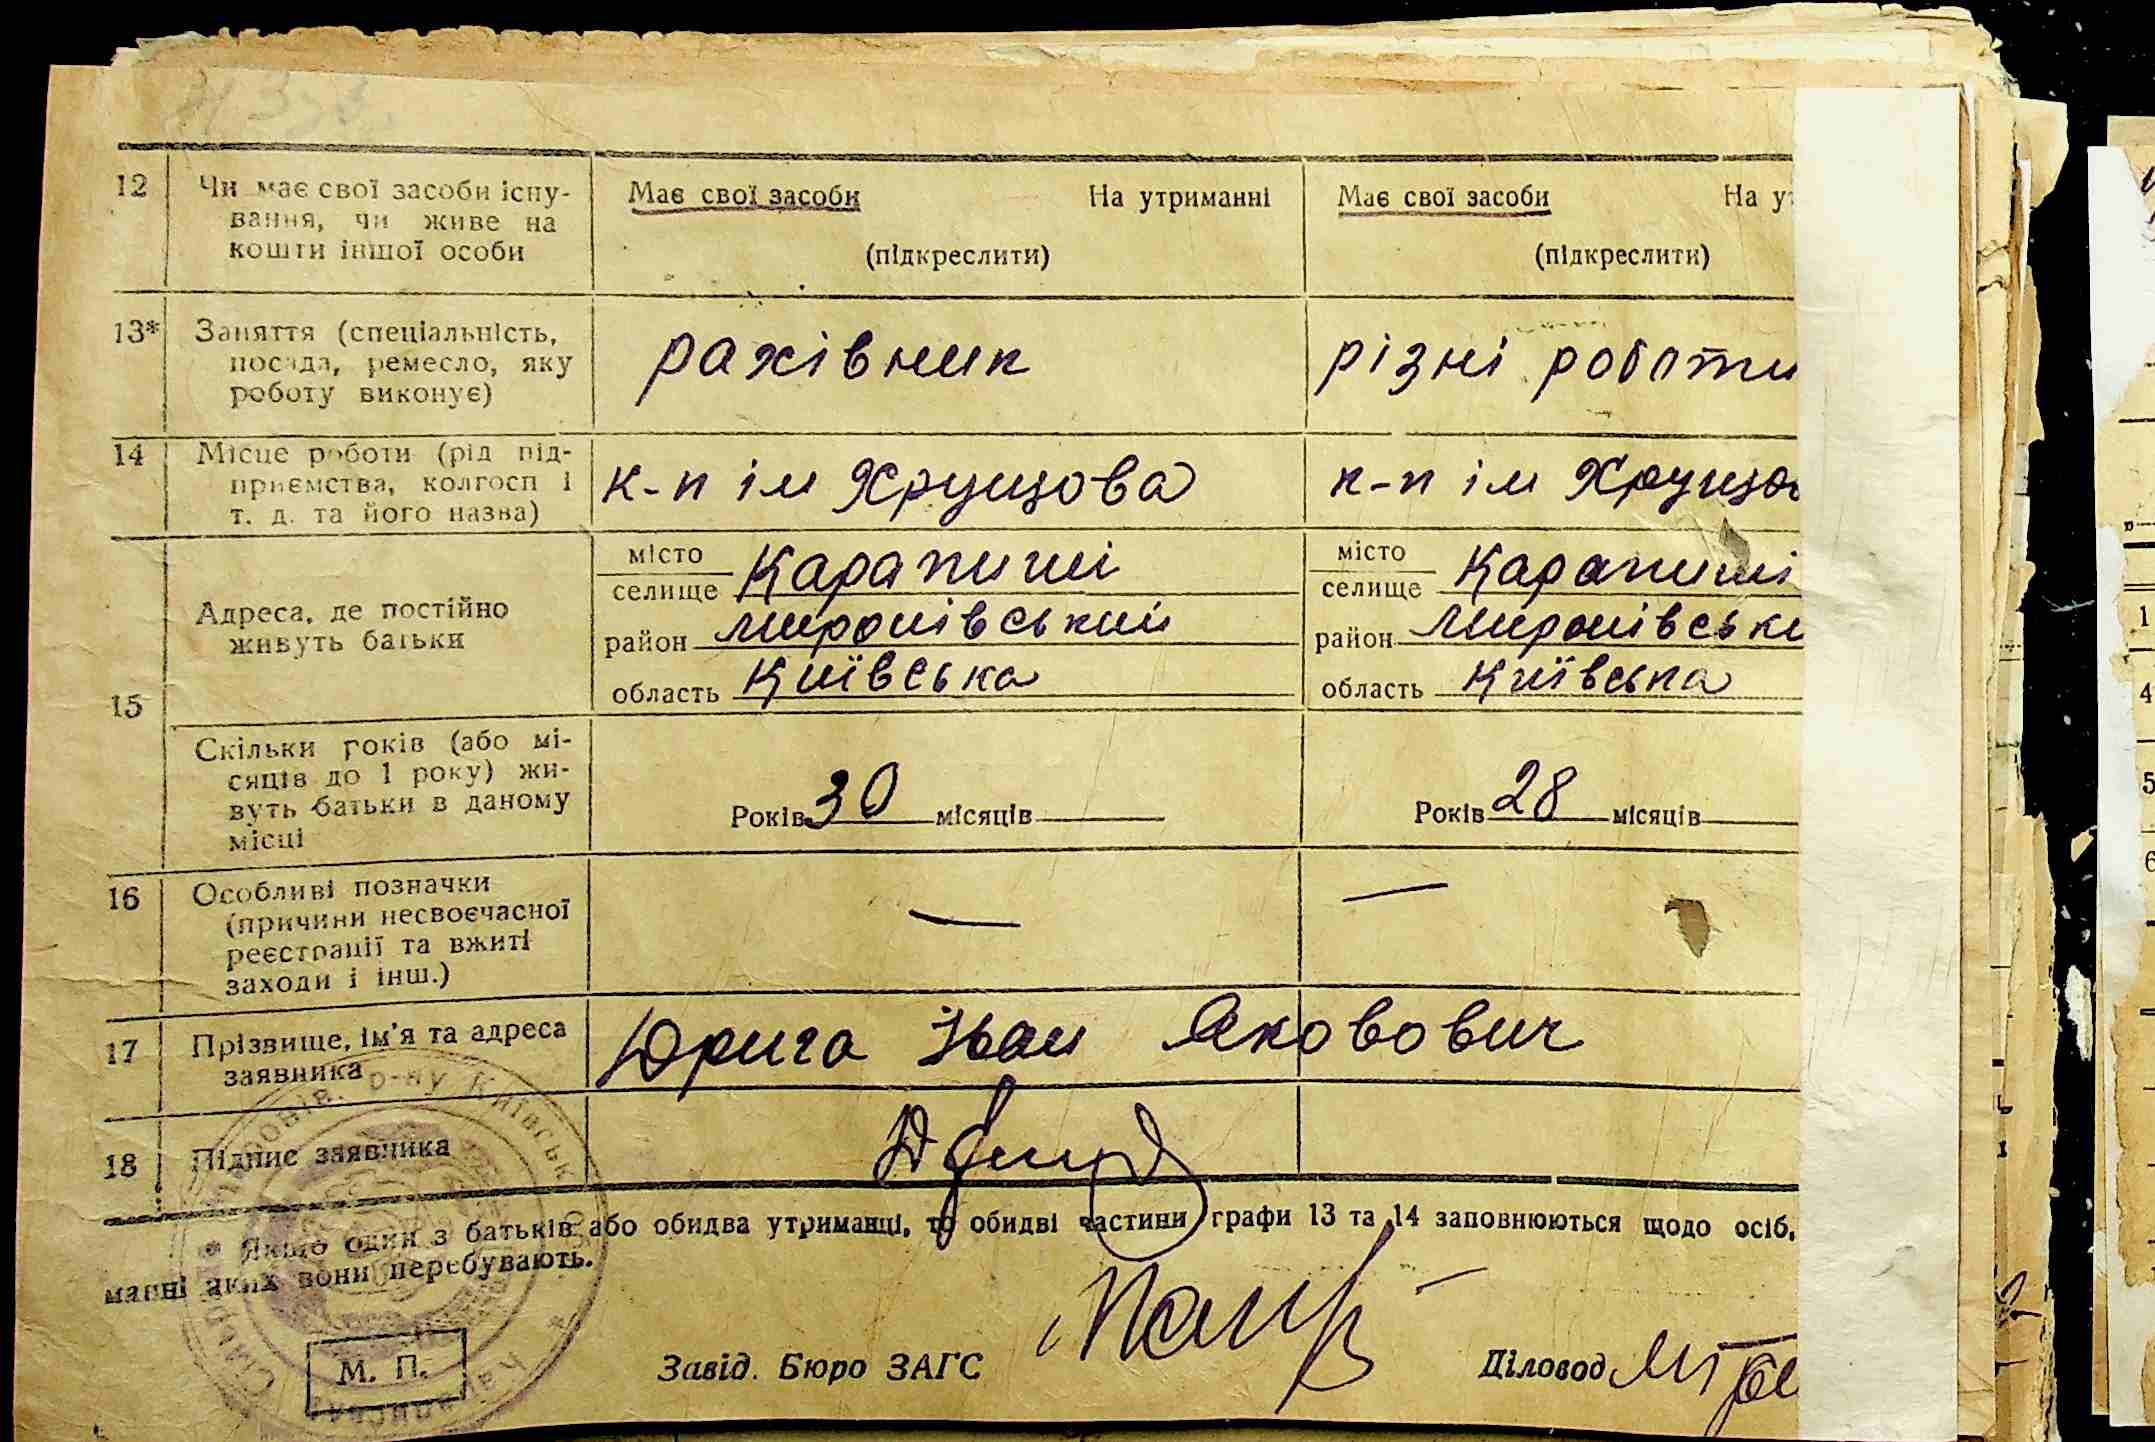 12 Чи має свої засоби існу- Має свої засоби На утриманні Має свої засоби На ут
вання, чи живе на
кошти іншої особи (підкреслити) (підкреслити)
13* Заняття (спеціальність,
посада, ремесло, яку рахівник різні роботи
роботу виконує)
14 Місце роботи (рід під-
приємства, колгосп і к-п ім Хрущова к-п ім Хрущов
т. д. та його назва)
місто Карапиші місто Карапиші
селище селище
Адреса, де постійно
живуть батьки район Миронівський район Миронівськи
область Київська область Київська
15
Скільки років (або мі-
сяців до 1 року) жи-
вуть батьки в даному Років 30 місяців Років 28 місяців
місці
16 Особливі позначки — —
(причини несвоєчасної
реєстрації та вжиті
заходи і інш.)
17 Прізвище, ім'я та адреса Юрига Іван Якович
заявника
18 Підпис заявника
* Якщо один з батьків або обидва утриманці, то обидві частини графи 13 та 14 заповнюються щодо осіб,
манні яких вони перебувають.
М. П. Завід. Бюро ЗАГС Діловод